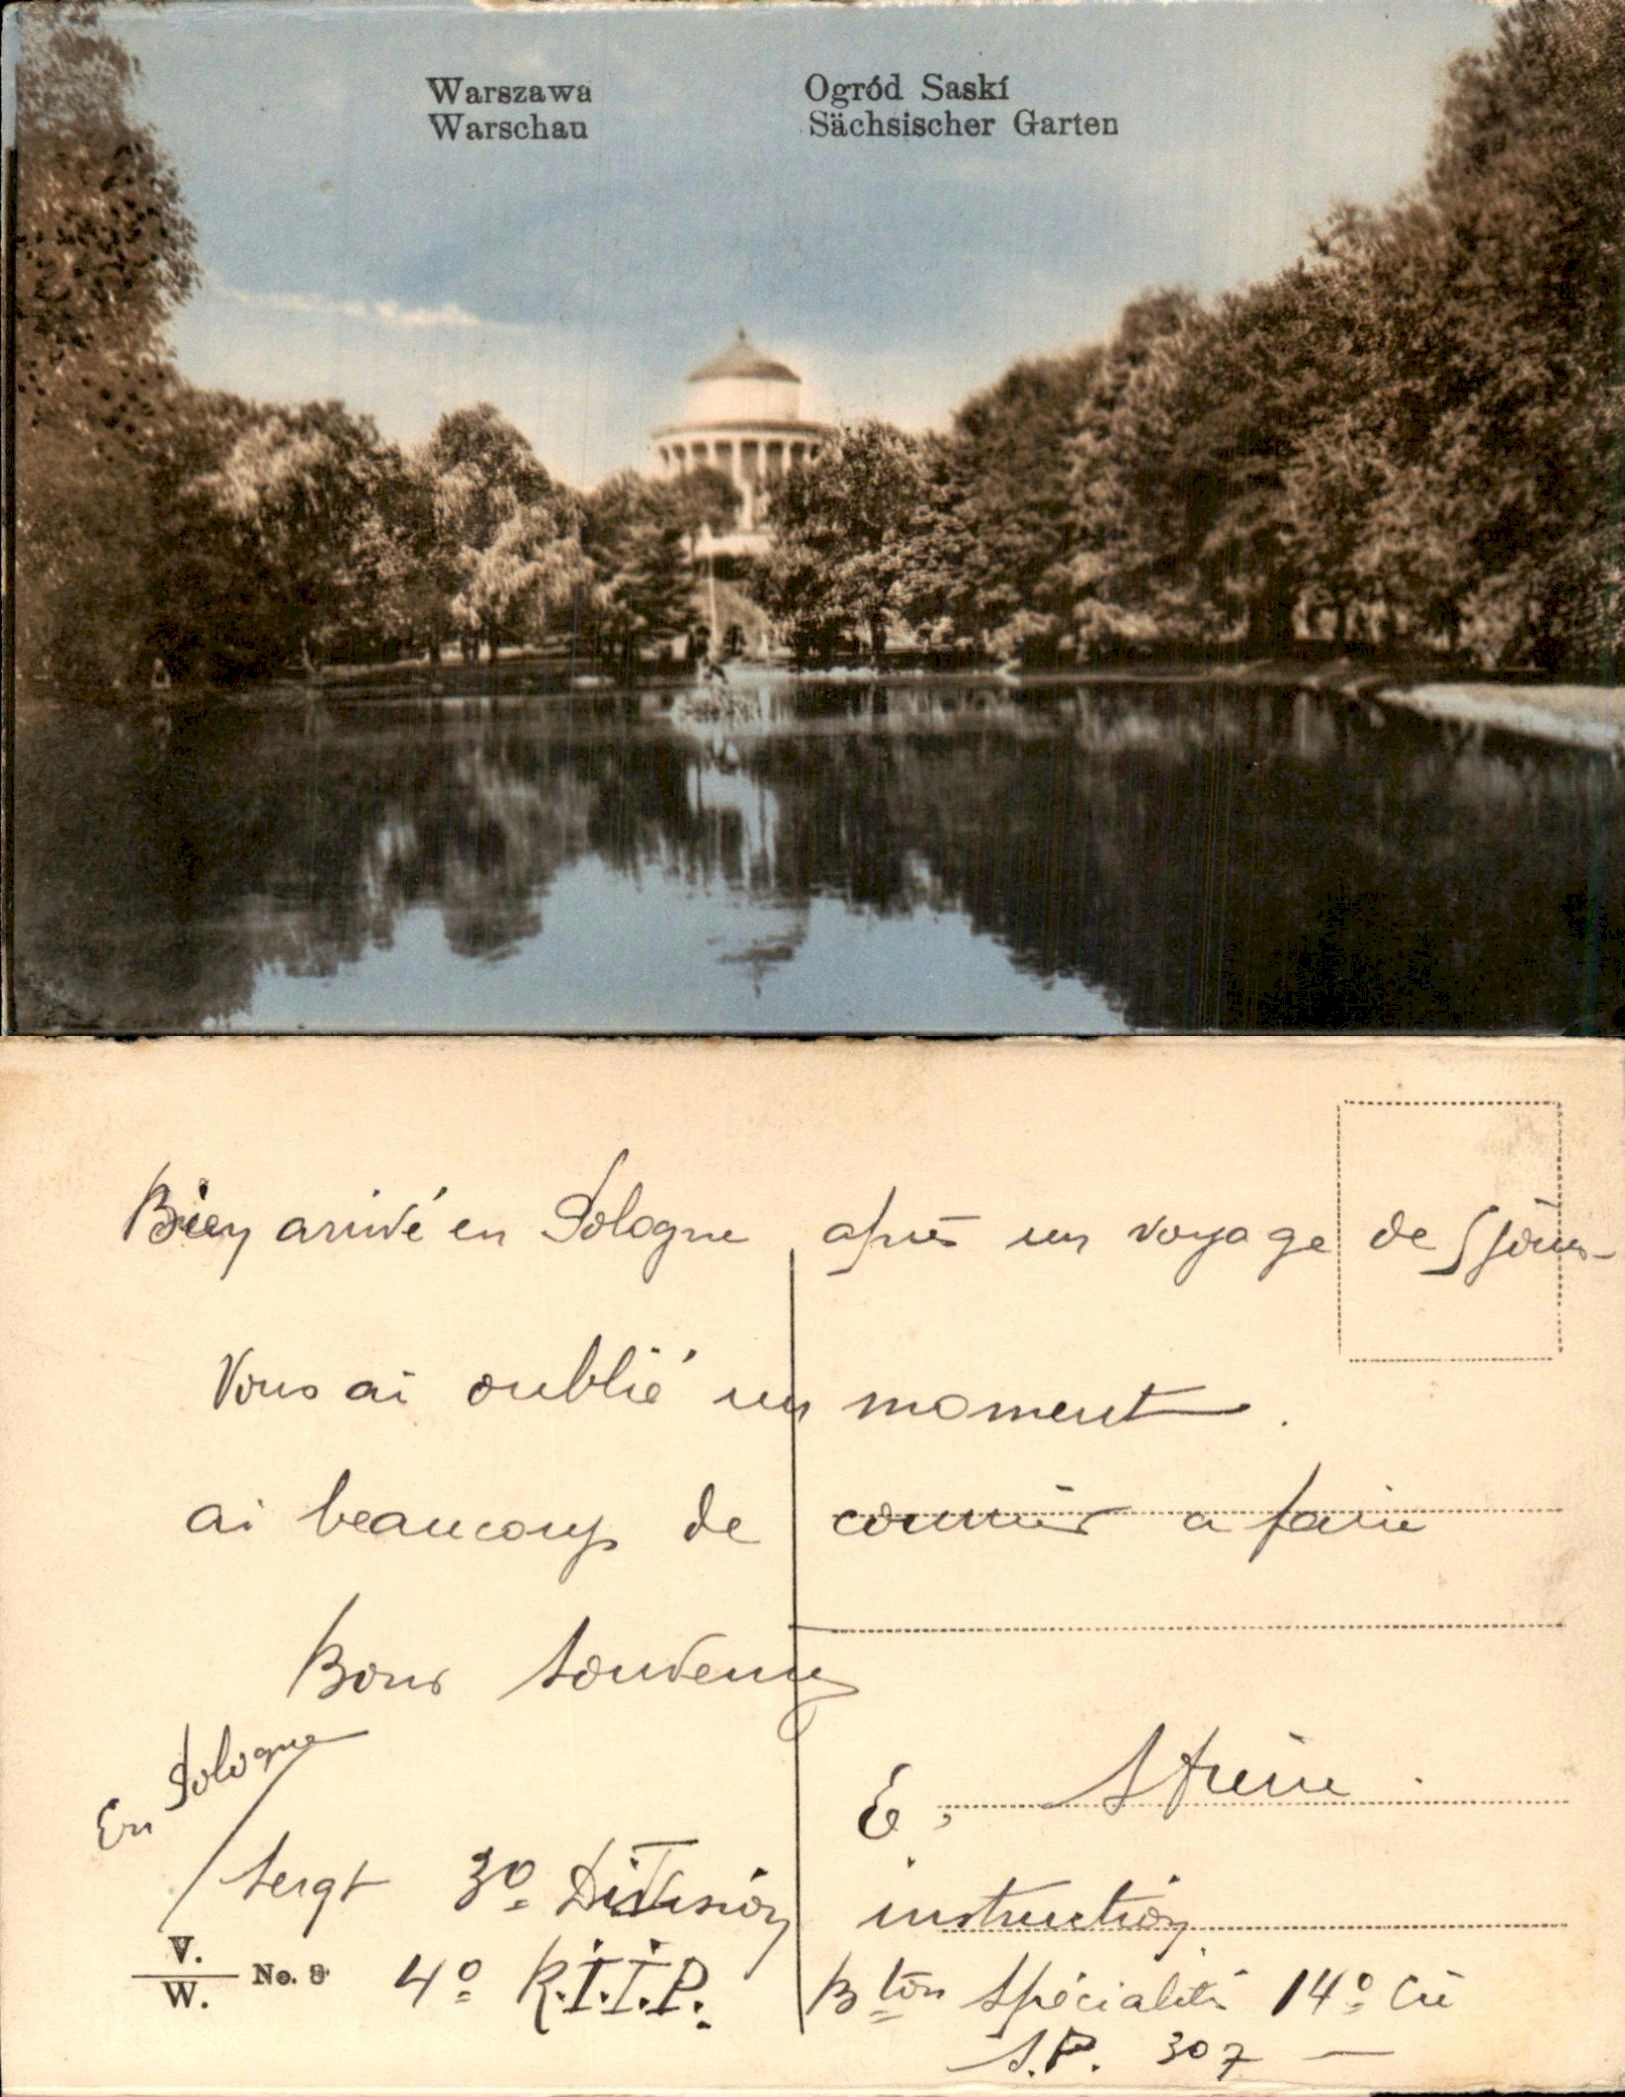 Warszawa
Warschau
Ogród Saski
Sächsischer Garten
Bien arrivé en Pologne après un voyage de 5 jours -
Vous ai oublié un moment.
ai beaucoup de courrier a faire
Bons souvenirs
En Pologne
E,
Sergt 3º Division
instruction
V.
W.
No.
4º R.I.I.P.
Bton Spécialité 14º Cie
S.P. 307 -